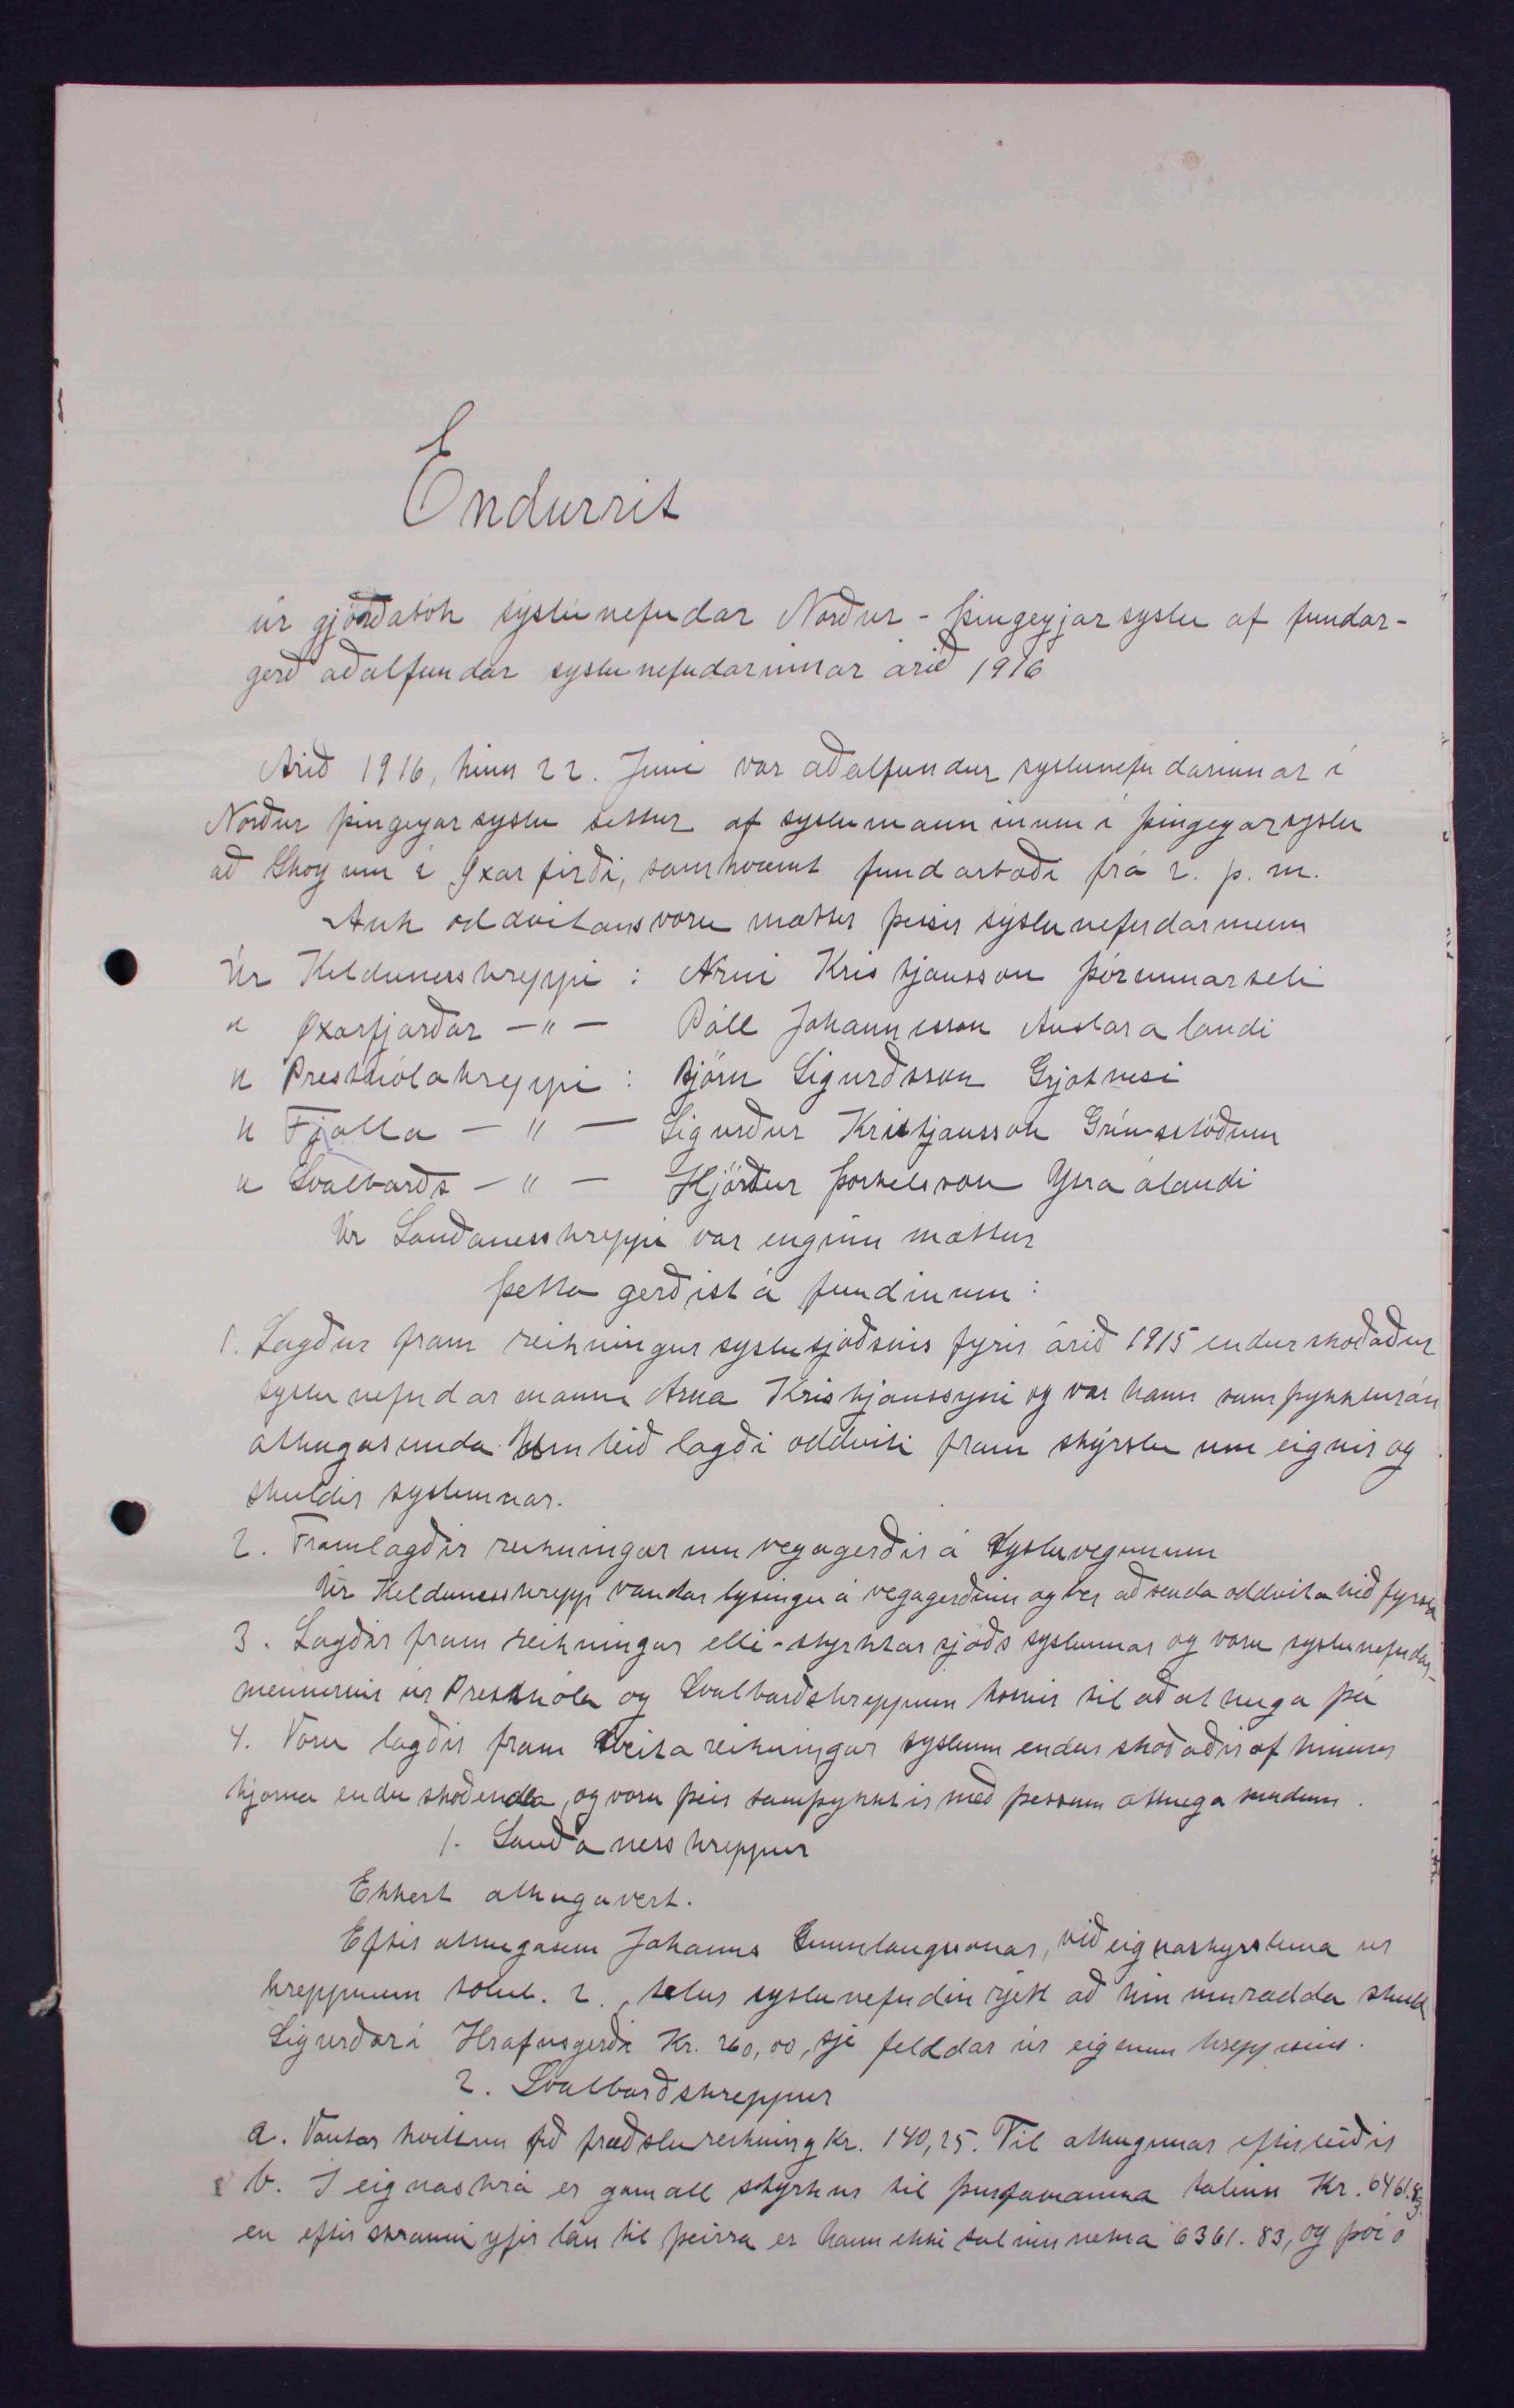 Endurrit
úr gjörðabók sýslunefndar Norður-Þingeyjarsyslu af fundar-
gerð aðalfundar syslunefndarinnar árið 1916
Árið 1916, hinn 22. Juni var aðalfundur syslunefndarinnar í
Norður þingeyarsyslu settur af syslumanninum í þingeyarsyslu
að Skogum í Øxarfirði, samkvæmt fundarboði frá 2. þ. m.
Auk oddvitans voru mættir þeisir sýslunefndarmenn
Úr Keldunesshreppi : Arni Kristjansson Þórunnarseli
" Øxarfjarðar - " - Páll Johannesson Austaralandi
" Presthólahreppi : Björn Sigurðsson Grjótnesi
" Fjalla - " - Sigurður Kristjansson Grímsstöðum
" Svalbarðs - " - Hjörtur Þorkelsson Ytraálandi
Úr Sauðanesshreppi var enginn mættur
Þetta gerðist á fundinum :
1. Lagður fram reikningur syslusjóðsins fyrir árið 1915 endurskoðaður
syslunefndarmanni Arna Kristjanssyni og var hann samþykktur án
athugasemda. Um leið lagði oddviti fram skýrslu um eignir og
skuldir syslunnar.
2. Framlagðir reikningar um vegagerðir á Sysluvegunum
Úr Keldunesshrepp vantar lysingu á vegagerðinni og ber að senda oddvita við fyrsta
3. Lagðir fram reikningar elli-styrktarsjóðs syslunnar og voru syslunefndar-
mennirnir úr Presthóla og Svalbarðshreppum kosnir til að athuga þá
4. Voru lagðir fram Sveitareikningar syslunnar endurskoðaðir af hinum
kjörna enduskoðenda, og voru þeir samþykktir með þessum athugasemdum.
1. Sauðanesshreppur
Ekkert athugavert.
Eftir athugasem Johanns Gunnlaugssonar, við eignaskyrsluna úr
hreppnum tölul. 2., telur syslunefndin rjett að hin umrædda skuld
Sigurðar í Hrafnsgerði Kr. 260,00, sje felddar úr eignum hreppsins.
2. Svalbarðshreppur
a. Vantar kvittun við fræðslureikning Kr. 140,25. Til athugunar eftirleiðis
b. I eignaskrá er gamall styrkur til þurfamanna talinn Kr. 6461.83.
en eftir skránni yfir lán til þeirra er hann ekki talinn nema 6361.83, og því o